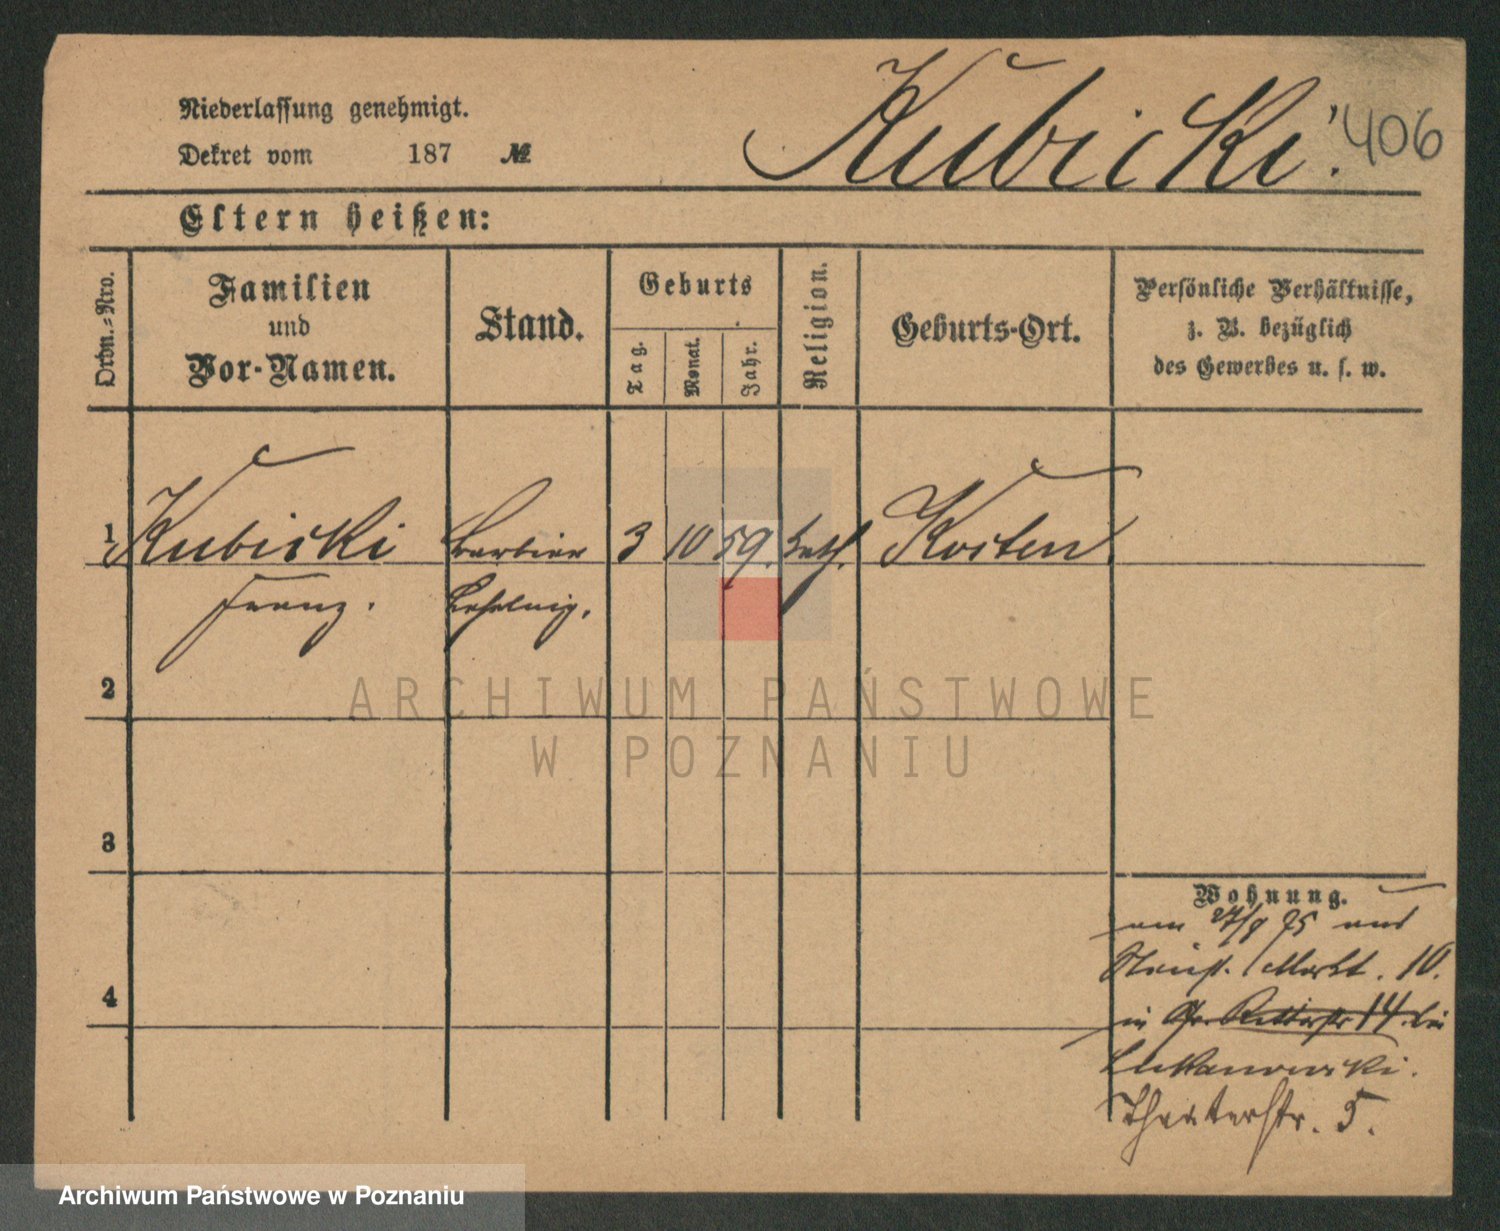 Niederlassung genehmigt.
Dekret vom 187 №
Kubicki.
406
Eltern heißen:
Ordn.-Nro.
Familien
und
Vor-Namen.
Stand.
Geburts
Tag.
Monat.
Jahr.
Religion.
Geburts-Ort.
Persönliche Verhältnisse,
z. B. bezüglich
des Gewerbes u. s. w.
1 Kubicki Barbier 3 10 59. kath. Kosten.
Franz.
2
3
Wohnung.
am 27/9 75 aus
Markt. 10.
4
in Gr. Ritterstr 14. bei
Lukanowski.
Theaterstr. 5.
ARCHIWUM PAŃSTWOWE
W POZNANIU
Archiwum Państwowe w Poznaniu